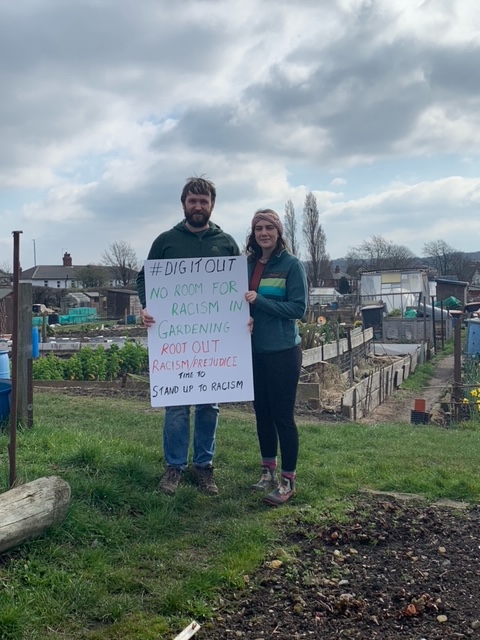 #DIGITOUT
NO ROOM FOR
RACISM IN
GARDENING
ROOT OUT
RACISM/PREJUDICE
TIME TO
STAND UP TO RACISM